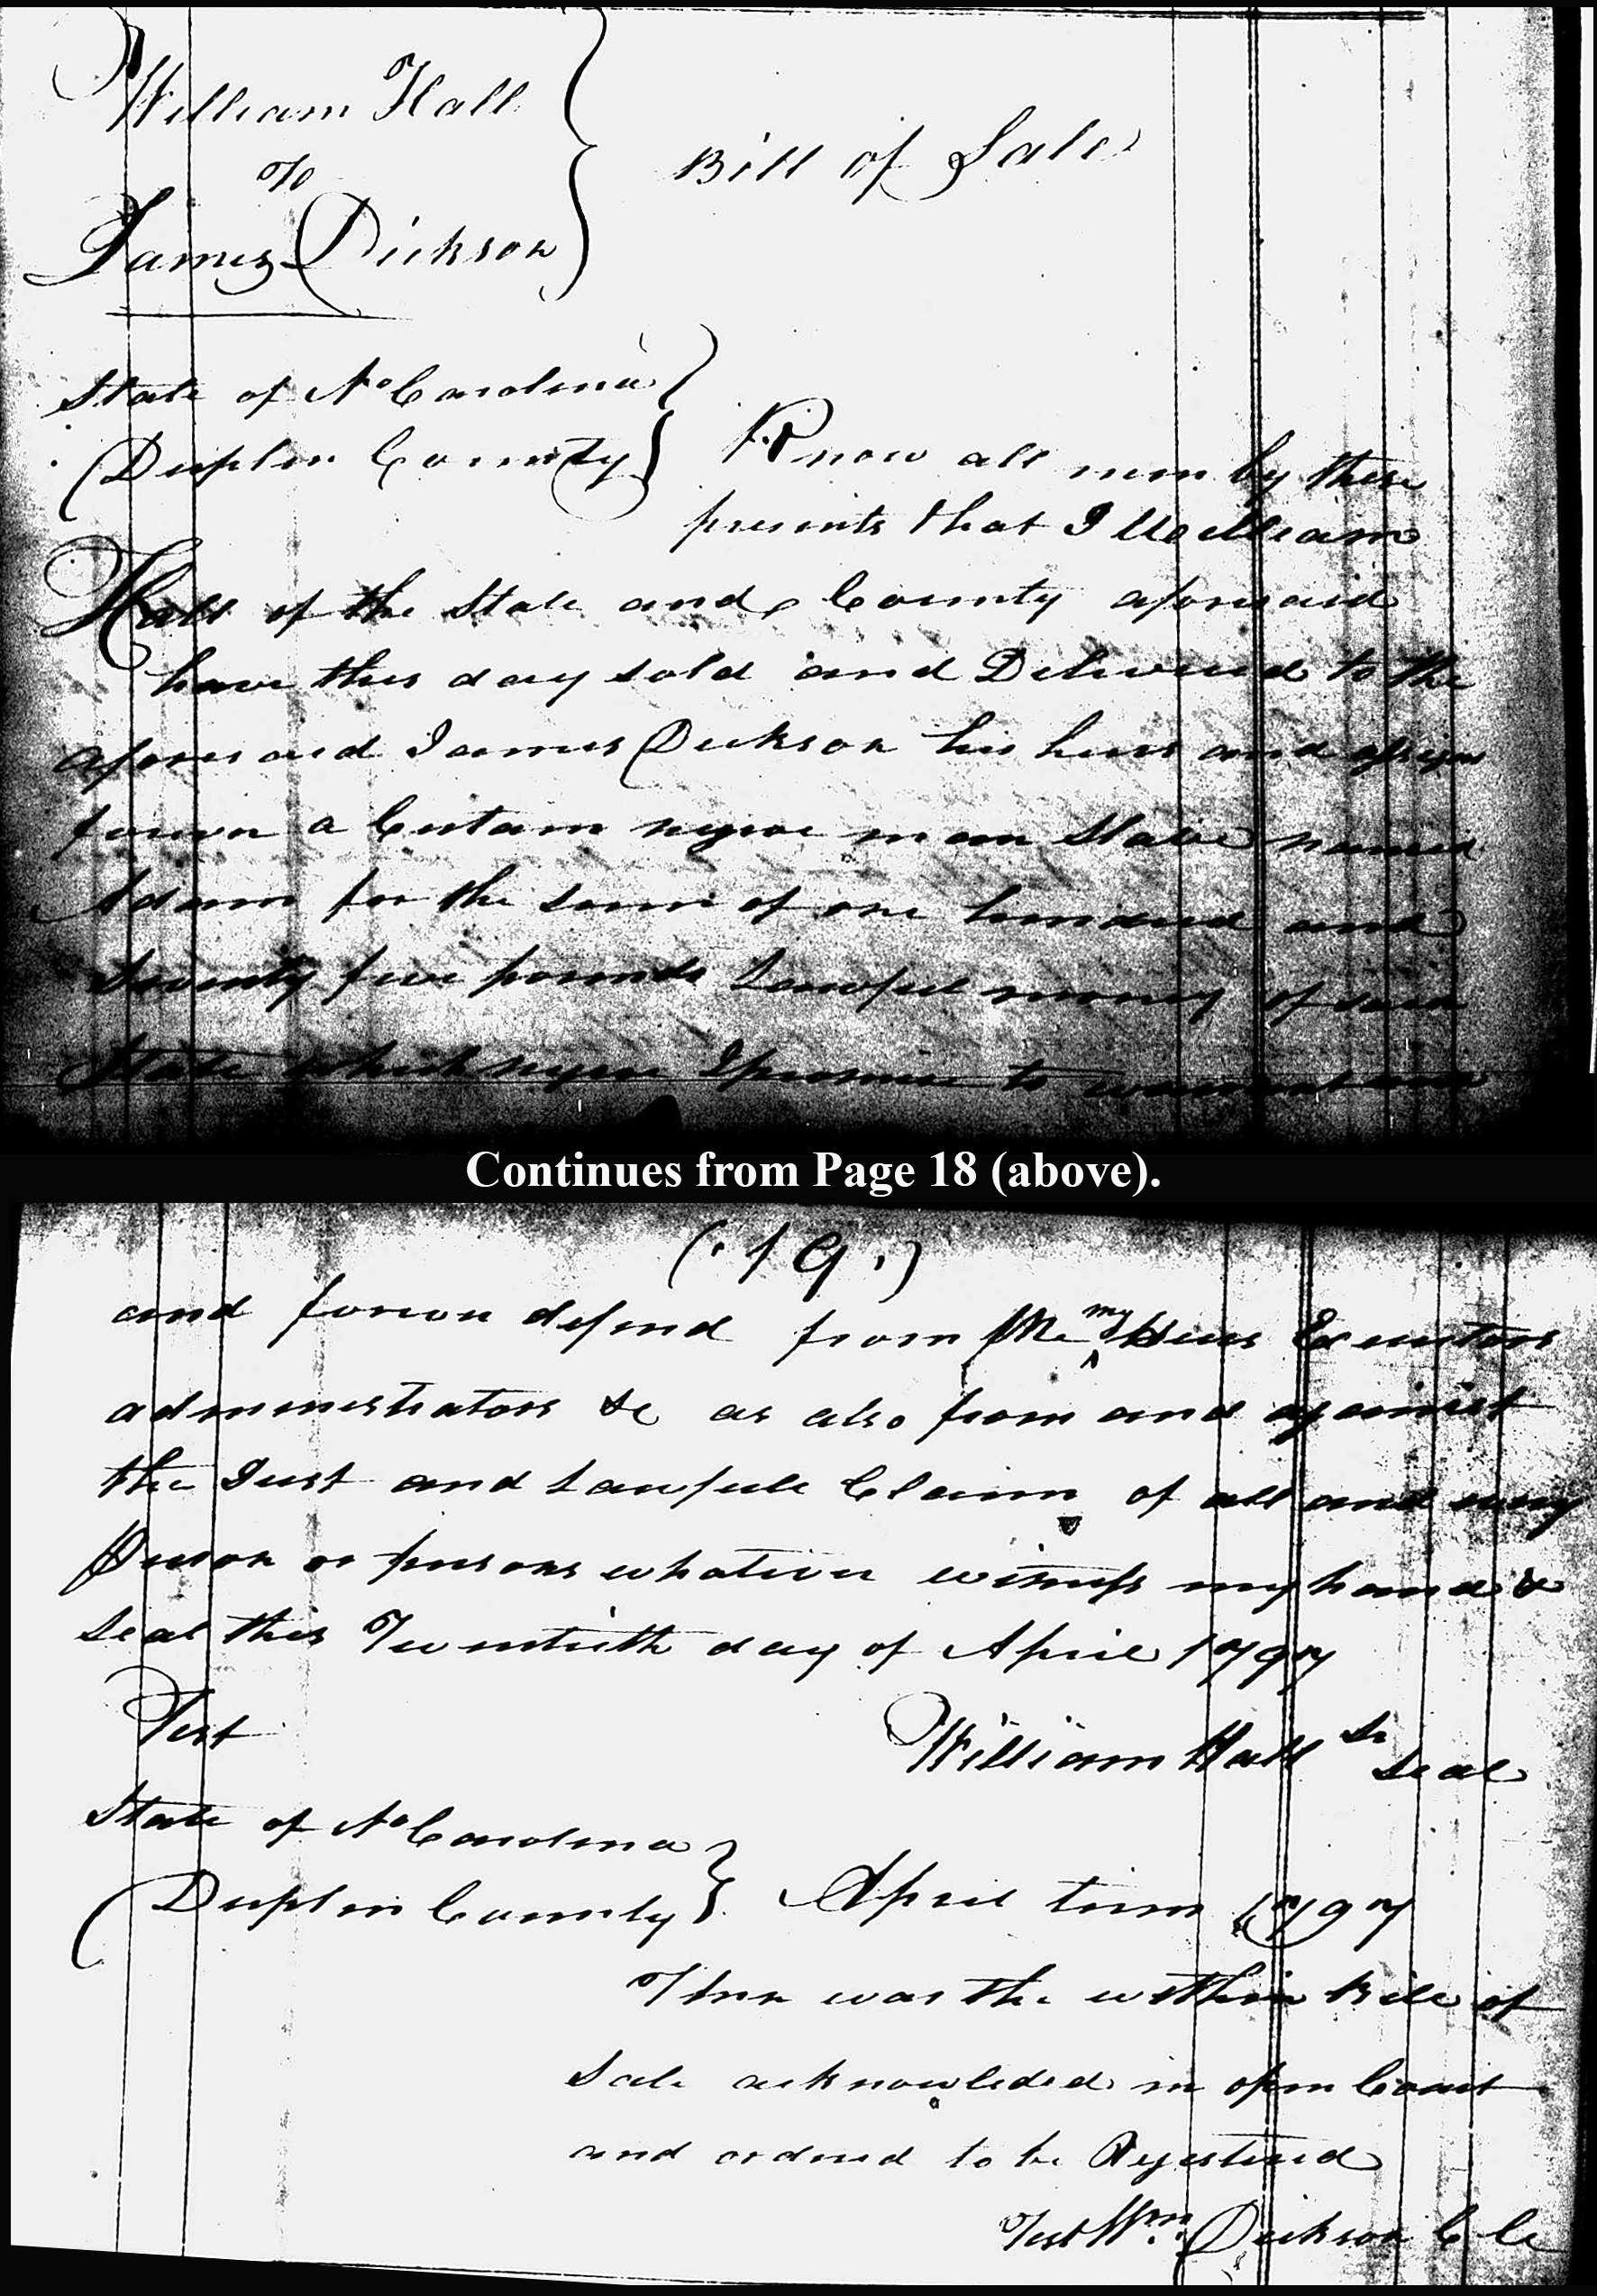 William Hall
To
James Dickson
Bill of Sale
State of No Carolina
Duplin County
Know all men by these
presents that I William
Hall of the State and County aforesaid
have this day sold and Delivered to the
aforesaid James Dickson his heirs and assigns
forever a Certain negroe man Slave named
Adam for the sum of one hundred and
Seventy five pounds Lawfull money of said
State which negroe I promise to warrant and
Continues from Page 18 (above).
(.19.)
and forever defend from Me my Heirs Executors
administrators &c as also from and against
the Just and Lawfull Claim of all and every
Person or persons whatever witness my hand &
Seal this Twentieth day of April 1797
Test
William Hall Sr Seal
State of No Carolina
Duplin County
April term 1797
Then was the within Bill of
Sale acknowleded in open Court
and ordered to be Registered
Test Wm. Dickson C Ck